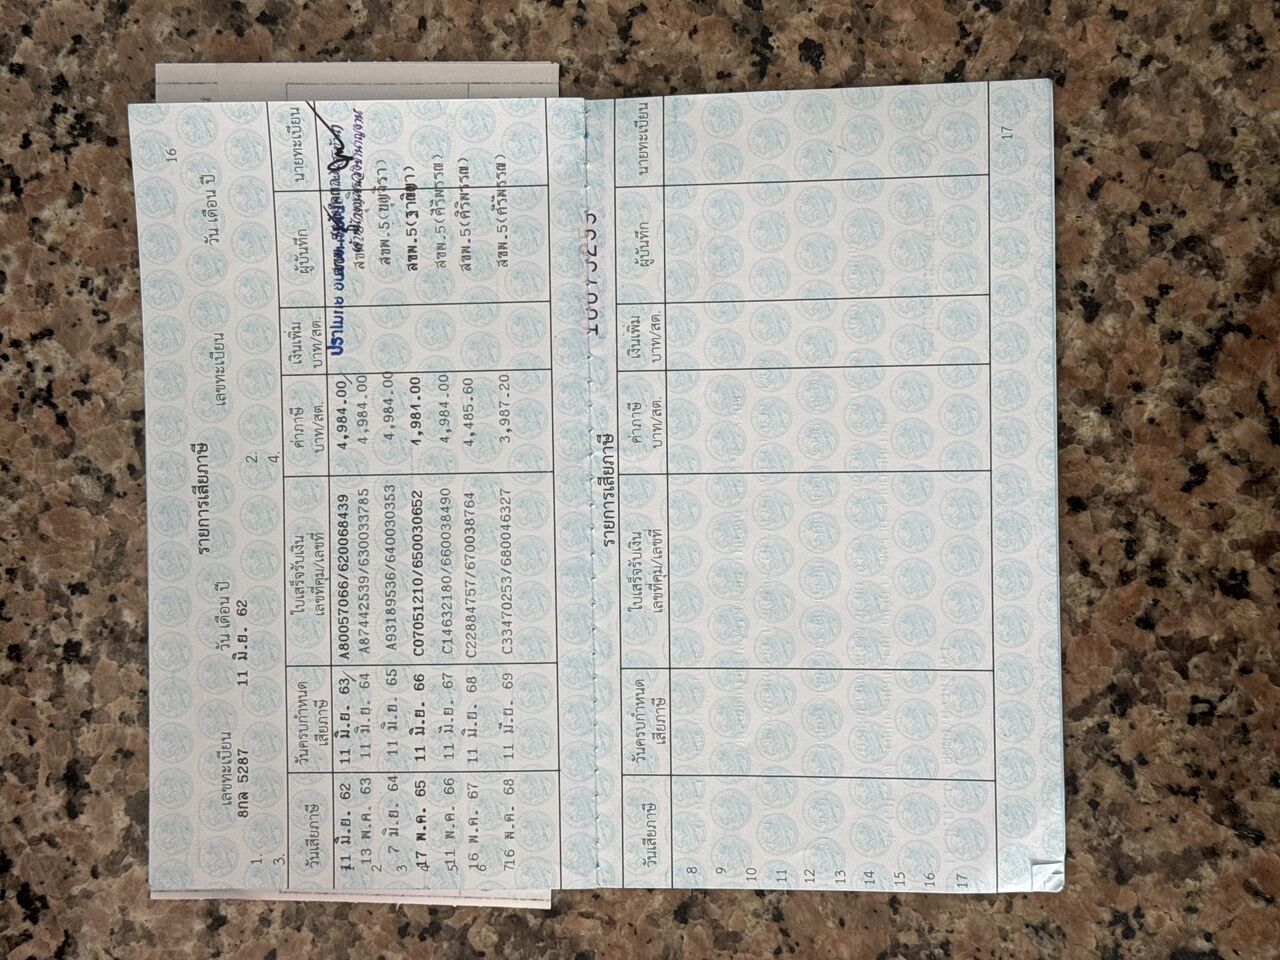 16
รายการเสียภาษี
เลขทะเบียน วัน เดือน ปี เลขทะเบียน วัน เดือน ปี
1. 8กล 5287 11 มิ.ย. 62 2.
3. 4.
วันเสียภาษี วันครบกำหนดเสียภาษี ใบเสร็จรับเงิน เลขที่คุม/เลขที่ ค่าภาษี บาท/สต. เงินเพิ่ม บาท/สต. ผู้บันทึก นายทะเบียน
1 11 มิ.ย. 62 11 มิ.ย. 63 A80057066/620068439 4,984.00
2 13 พ.ค. 63 11 มิ.ย. 64 A87442539/630033785 4,984.00
3 7 มิ.ย. 64 11 มิ.ย. 65 A93189536/640030353 4,984.00 สขพ.5
4 17 พ.ค. 65 11 มิ.ย. 66 C07051210/650030652 4,984.00 สขพ.5
5 11 พ.ค. 66 11 มิ.ย. 67 C14632180/660038490 4,984.00 สขพ.5(ศิริพรรณ)
6 16 พ.ค. 67 11 มิ.ย. 68 C22884757/670038764 4,485.60 สขพ.5(ศิริพรรณ)
7 16 พ.ค. 68 11 มิ.ย. 69 C33470253/680046327 3,987.20 สขพ.5(ศิริพรรณ)
รายการเสียภาษี
วันเสียภาษี วันครบกำหนดเสียภาษี ใบเสร็จรับเงิน เลขที่คุม/เลขที่ ค่าภาษี บาท/สต. เงินเพิ่ม บาท/สต. ผู้บันทึก นายทะเบียน
8
9
10
11
12
13
14
15
16
17
17